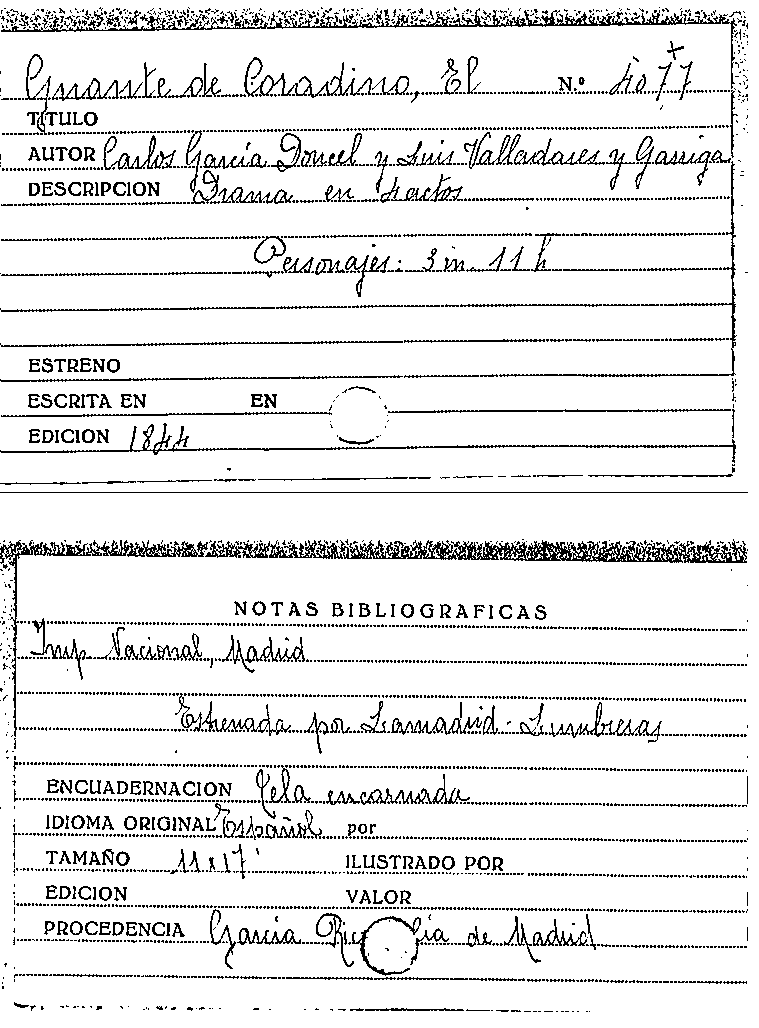 Guante de Coradino, El N.º 4077
TITULO
AUTOR Carlos García Doncel y Luis Valladares y Garriga
DESCRIPCION Drama en 4 actos
Personajes: 3 m. 11 h
ESTRENO
ESCRITA EN EN
EDICION 1844
NOTAS BIBLIOGRAFICAS
Imp Nacional, Madrid
Estrenada por Lamadrid - Lumbreras
ENCUADERNACION Tela encarnada
IDIOMA ORIGINAL Español por
TAMAÑO 11 x 17 ILUSTRADO POR
EDICION VALOR
PROCEDENCIA García Rico de Madrid